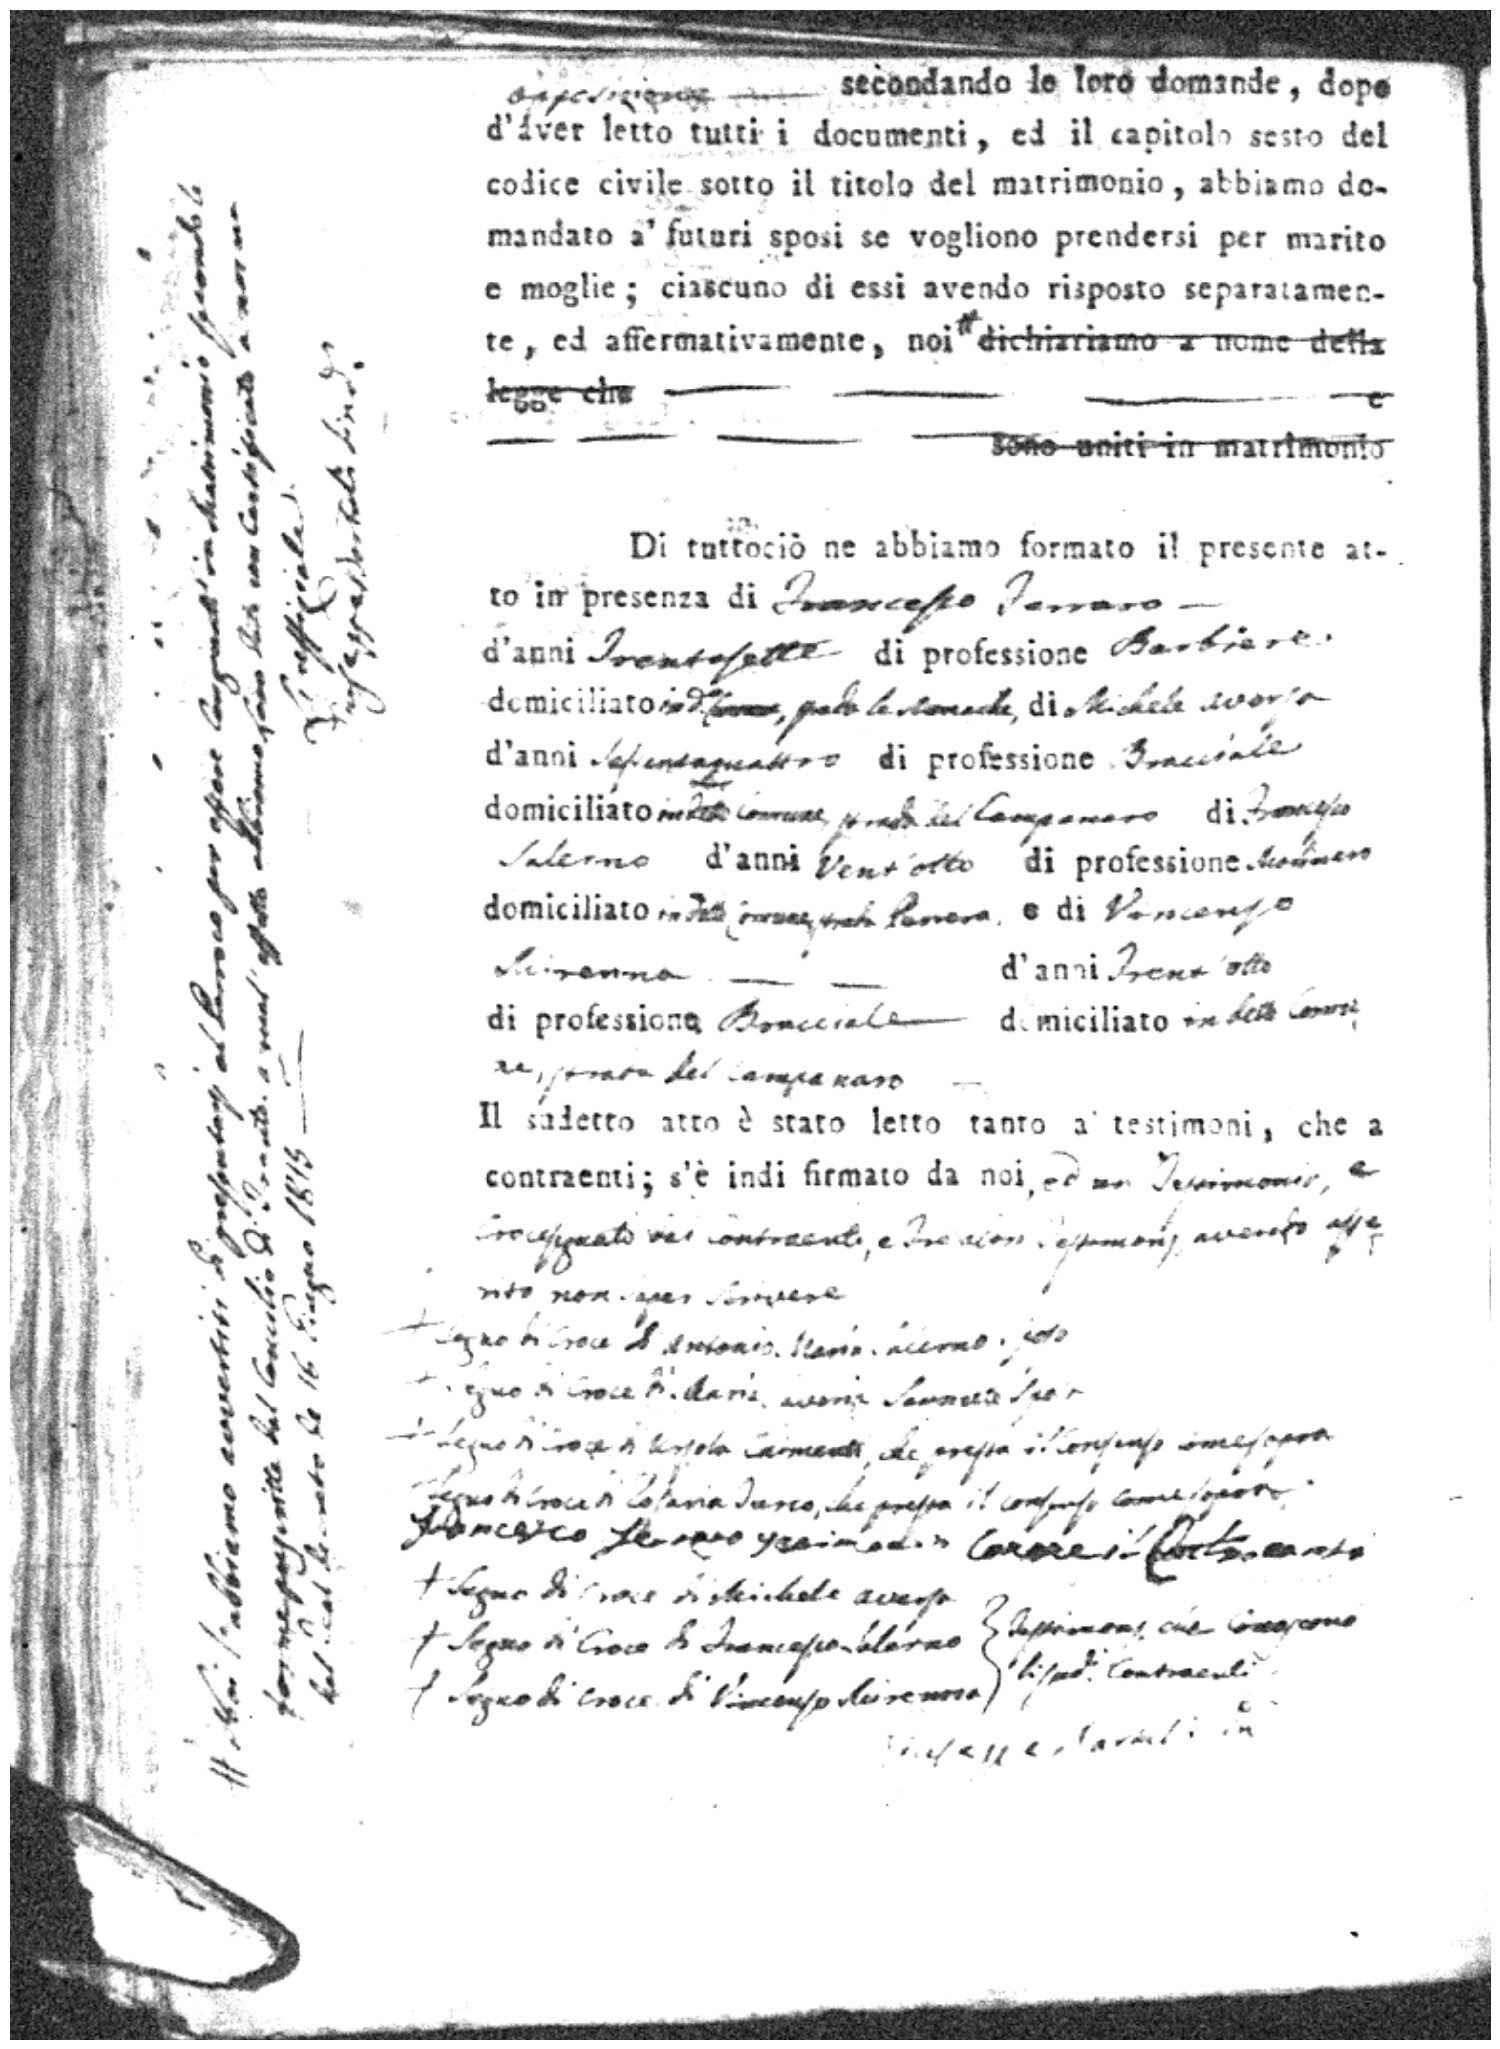 opposizione secondando le loro domande, dopo
d'aver letto tutti i documenti, ed il capitolo sesto del
codice civile sotto il titolo del matrimonio, abbiamo do-
mandato a' futuri sposi se vogliono prendersi per marito
e moglie; ciascuno di essi avendo risposto separatamen-
te, ed affermativamente, noi # dichiariamo a nome della
legge che e
sono uniti in matrimonio
Di tuttociò ne abbiamo formato il presente at-
to in presenza di Francesco Ferraro
d'anni Trentasette di professione Barbiere
domiciliato in d. Comune, strada le Monache, di Michele Aversa
d'anni Sessantaquattro di professione Bracciale
domiciliato in detto Comune, strada del Campanaro di Francesco
Salerno d'anni Vent'otto di professione
domiciliato in detto Comune, strada e di Vincenzo
d'anni Trent'otto
di professione Bracciale domiciliato in detto Comu
ne, strada del Campanaro
Il sudetto atto è stato letto tanto a' testimoni, che a
contraenti; s'è indi firmato da noi, ed un Testimonio, e
Crocesegnato dai Contraenti, e Tre altri Testimonj, avendo asse
rito non saper scrivere
+ Segno di Croce di Antonio Maria Salerno sposo
+ Segno di Croce di Maria sposa
+ Segno di Croce di Orsola che presta il Consenso come sopra
Segno di Croce di che presta il consenso come sopra
Francesco Ferraro
+ Segno di Croce di Michele Aversa
+ Segno di Croce di Francesco Salerno
+ Segno di Croce di Vincenzo
Testimonj, che Conoscono
li sud.i Contraenti
# Noi l'abbiamo avvertiti di presentarsi al Parroco per essere Congiunti in Matrimonio secondo le
forme prescritte dal Concilio di Trento, a qual effetto abbiamo dato con Certificato a norma
del Real Decreto de 16 Giugno 1815